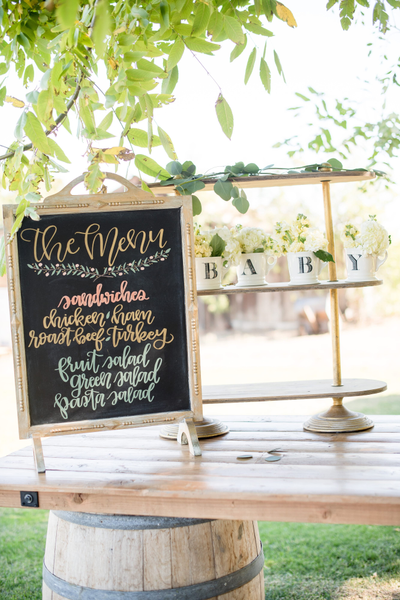 The Menu
sandwiches
chicken • ham
roast beef • turkey
fruit salad
green salad
pasta salad
BABY